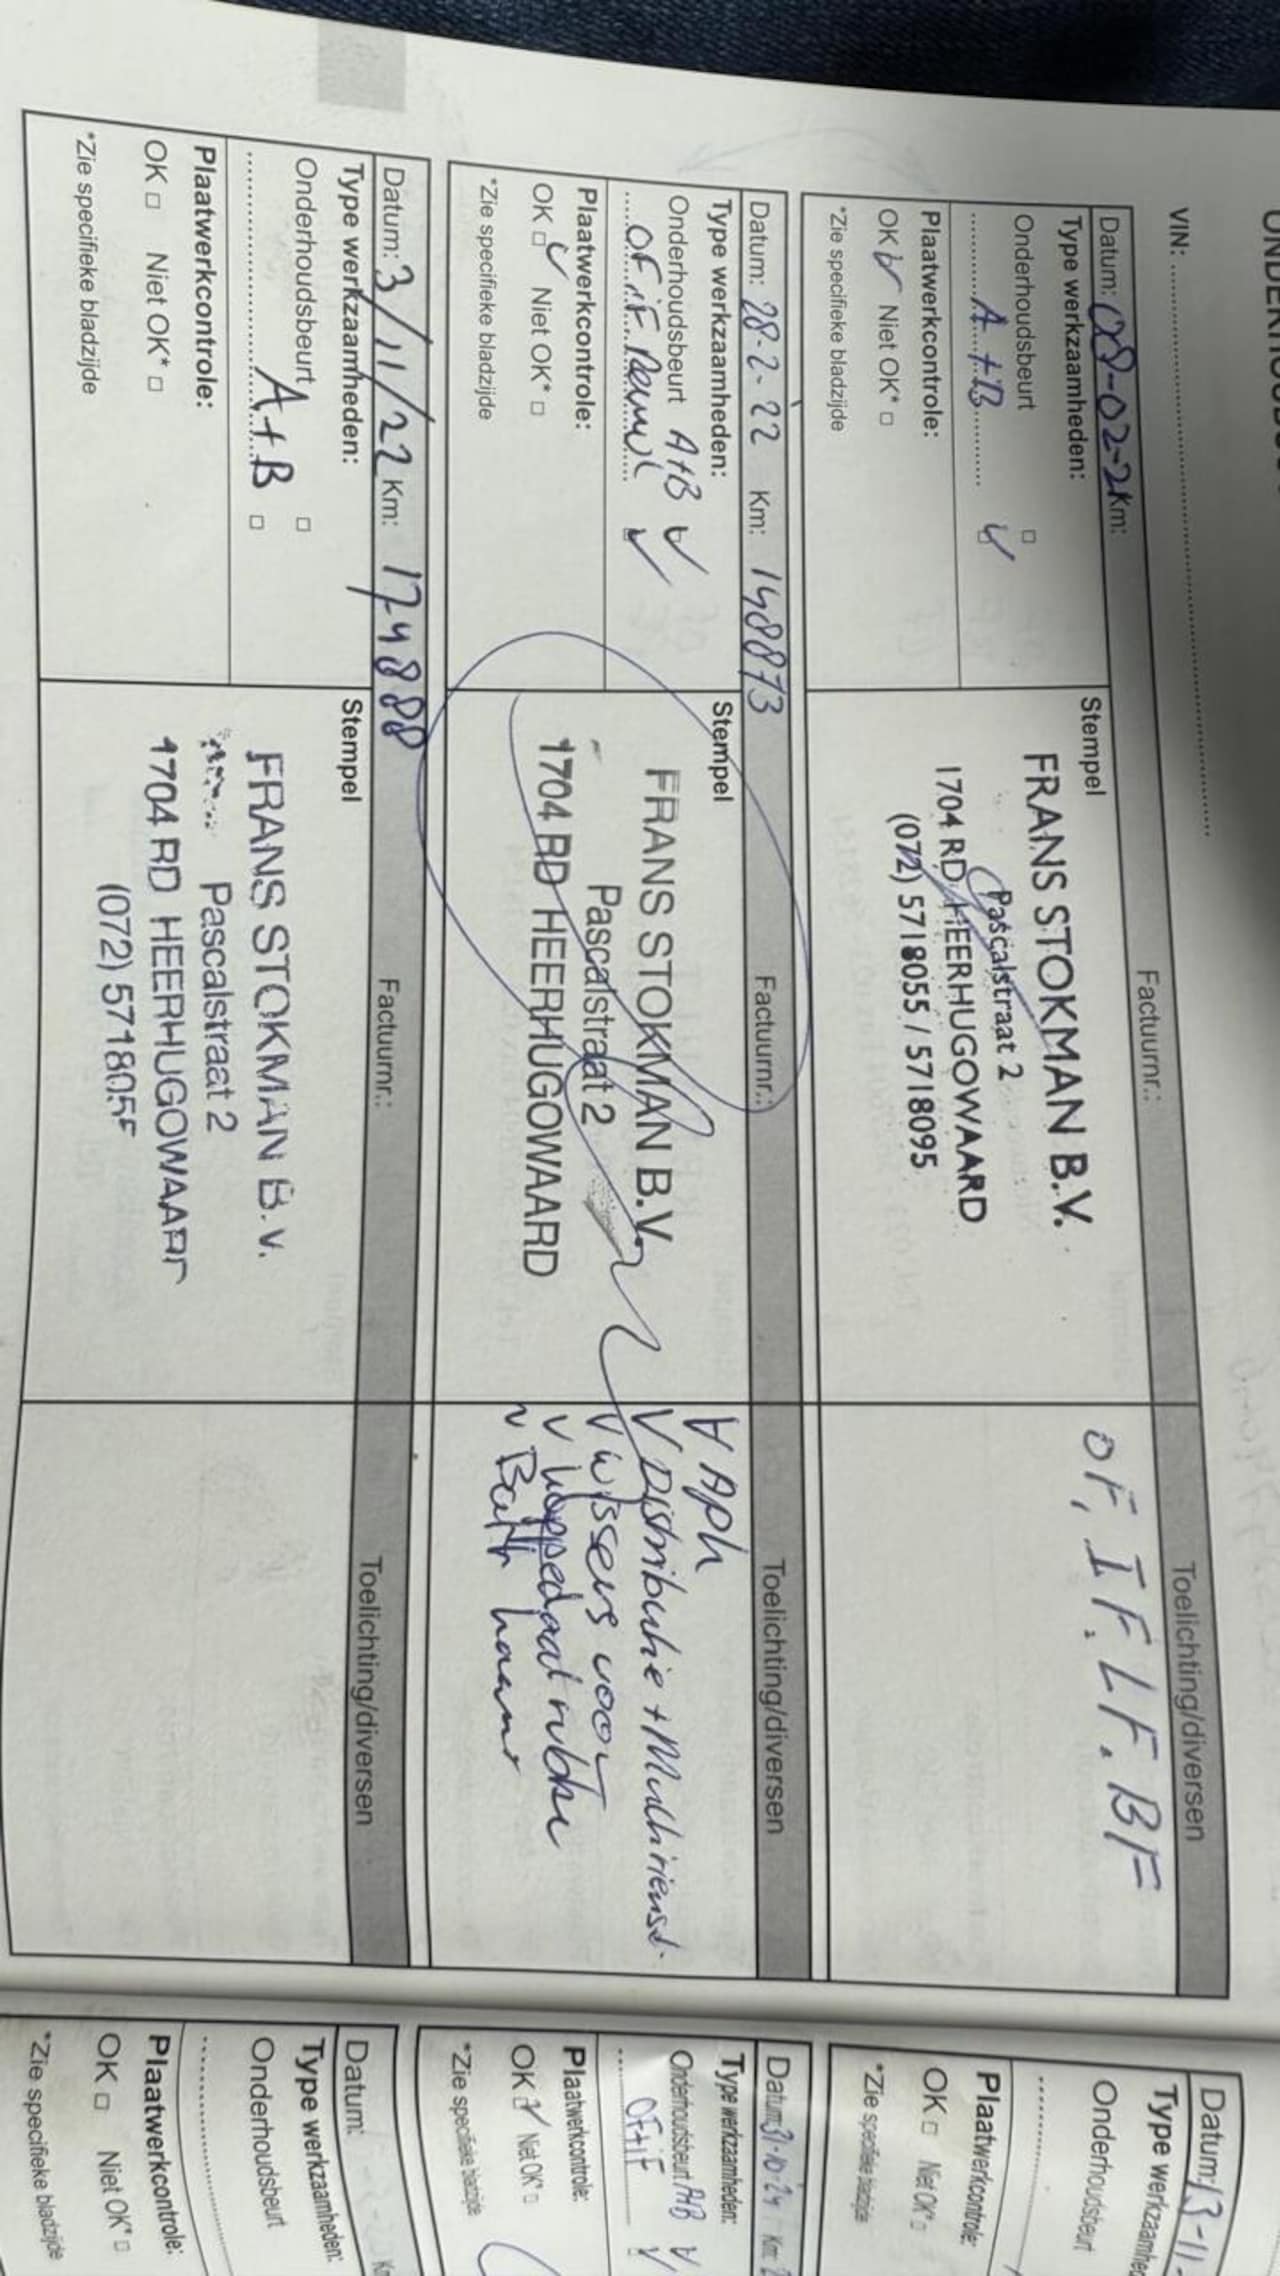 VIN:
Datum: 08-02-2 Km:
Factuurnr.:
Toelichting/diversen
Type werkzaamheden:
Onderhoudsbeurt
A + B
Plaatwerkcontrole:
OK Niet OK*
*Zie specifieke bladzijde
Stempel
FRANS STOKMAN B.V.
Pascalstraat 2
1704 RD HEERHUGOWAARD
(072) 5718055 / 5718095
OF, IF. LF. BF
Datum: 28-2-22 Km: 148873
Factuurnr.:
Toelichting/diversen
Type werkzaamheden:
Onderhoudsbeurt A+B
OF. iF
Plaatwerkcontrole:
OK Niet OK*
*Zie specifieke bladzijde
Stempel
FRANS STOKMAN B.V.
Pascalstraat 2
1704 RD HEERHUGOWAARD
V Apk
V Distributie + Multiriemsd.
V wissers voor
V
Datum: 3/11/22 Km: 174888
Factuurnr.:
Toelichting/diversen
Type werkzaamheden:
Onderhoudsbeurt
A+B
Plaatwerkcontrole:
OK Niet OK*
*Zie specifieke bladzijde
Stempel
FRANS STOKMAN B.V.
Pascalstraat 2
1704 RD HEERHUGOWAAR
(072) 5718055
Datum: 13-11-
Type werkzaamhe
Onderhoudsbeurt
Plaatwerkcontrole:
OK Niet OK*
*Zie specifieke bladzijde
Datum: 31-10-24 Km: 2
Type werkzaamheden:
Onderhoudsbeurt A+B
OF+iF
Plaatwerkcontrole:
OK Niet OK*
*Zie specifieke bladzijde
Datum:
Type werkzaamheden:
Onderhoudsbeurt
Plaatwerkcontrole:
OK Niet OK*
*Zie specifieke bladzijde